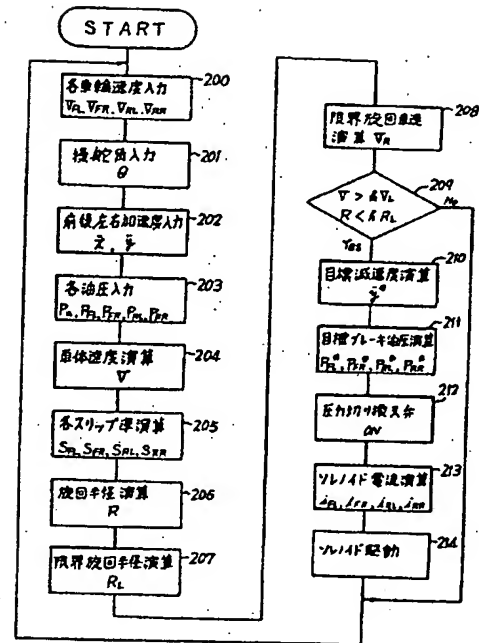 START
200
各車輪速度入力
V_FL, V_FR, V_RL, V_RR
201
操舵角入力
θ
202
前後左右加速度入力
ẍ, ÿ
203
各油圧入力
P_FL, P_FR, P_RL, P_RR
204
車体速度演算
V
205
各スリップ率演算
S_FL, S_FR, S_RL, S_RR
206
旋回半径演算
R
207
限界旋回半径演算
R_L
208
限界旋回車速
演算 V_R
209
No
R < k R_L
Yes
210
目標減速度演算
211
目標ブレーキ油圧演算
P_FL*, P_FR*, P_RL*, P_RR*
212
圧力切り換え弁
ON
213
ソレノイド電流演算
i_FL, i_FR, i_RL, i_RR
214
ソレノイド駆動